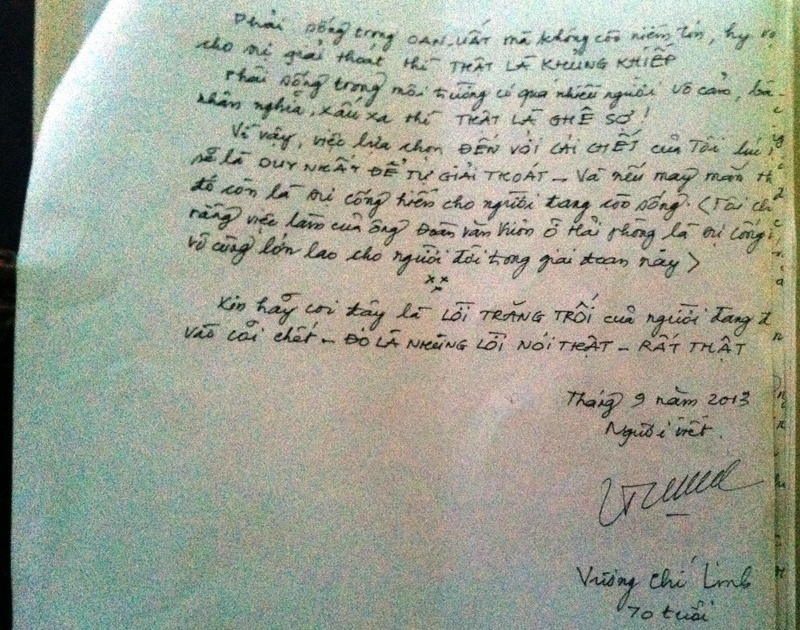 Phải sống trong OAN_UẤT mà không còn niềm tin, hy vọ
cho sự giải thoát thì THẬT LÀ KHỦNG KHIẾP
Phải sống trong môi trường có quá nhiều người vô cảm, bấ
nhân nghĩa, xấu xa thì THẬT LÀ GHÊ SỢ!
Vì vậy, việc lựa chọn ĐẾN VỚI CÁI CHẾT của Tôi lúc
sẽ là DUY NHẤT ĐỂ TỰ GIẢI THOÁT _ Và nếu may mắn th
đó còn là sự cống hiến cho người đang còn sống. (Tôi ch
rằng việc làm của ông Đoàn văn Vươn ở Hải phòng là sự cống
vô cùng lớn lao cho người đời trong giai đoạn này)
x x x
Xin hãy coi đây là LỜI TRĂNG TRỐI của người đang đ
vào cõi chết _ ĐÓ LÀ NHỮNG LỜI NÓI THẬT _ RẤT THẬT
Tháng 9 năm 2013
Người viết.
Vương Chí Linh
70 tuổi